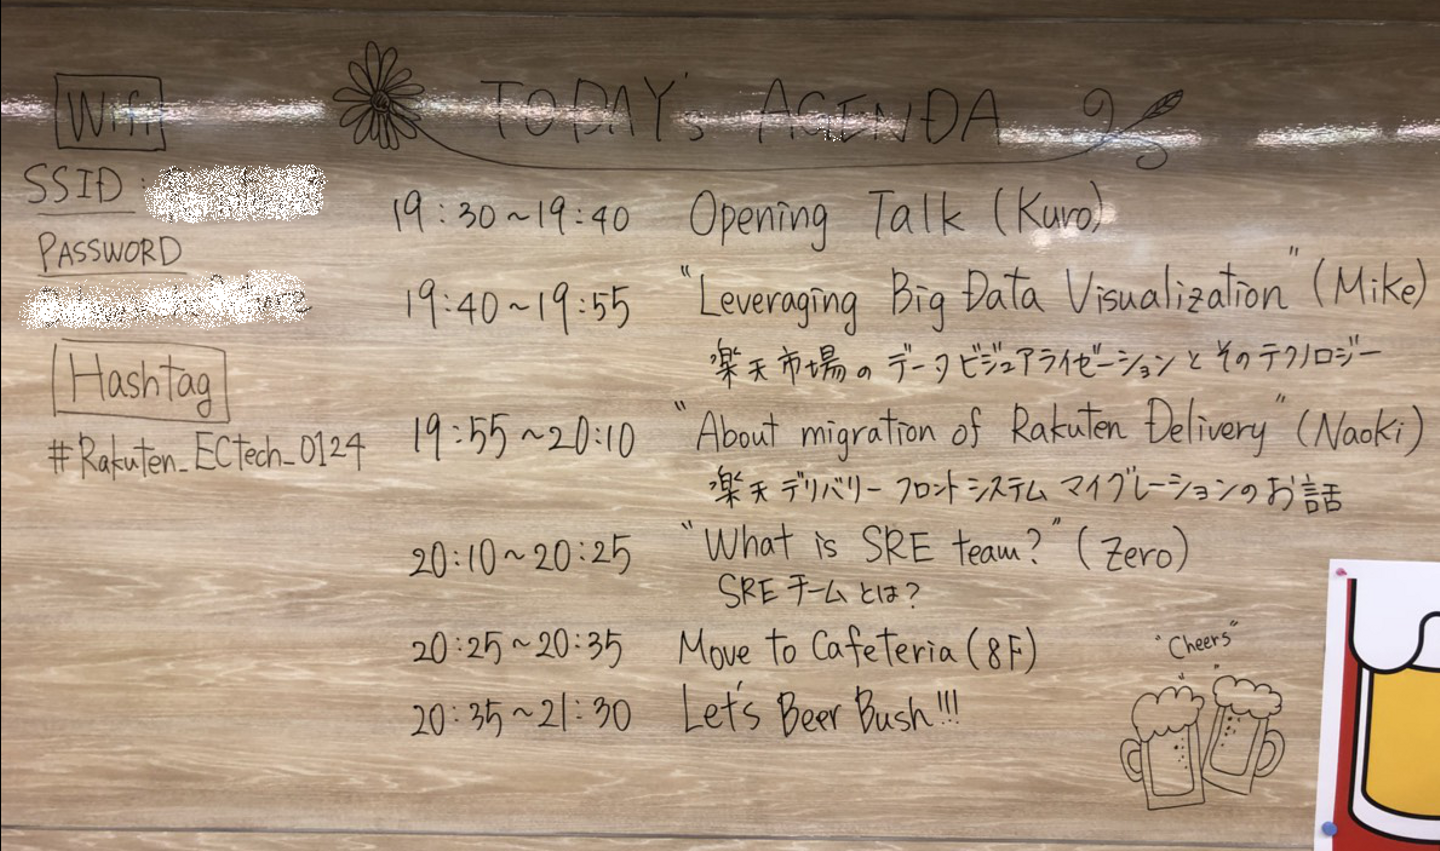 Wifi
SSID :
PASSWORD
Hashtag
#Rakuten_ECtech_0124
TODAY's AGENDA
19:30~19:40 Opening Talk (Kuro)
19:40~19:55 "Leveraging Big Data Visualization" (Mike)
楽天市場の データビジュアライゼーションと そのテクノロジー
19:55~20:10 "About migration of Rakuten Delivery" (Naoki)
楽天デリバリー フロントシステム マイグレーションのお話
20:10~20:25 "What is SRE team?" (Zero)
SRE チームとは?
20:25~20:35 Move to Cafeteria (8F)
20:35~21:30 Let's Beer Bush!!!
"Cheers"